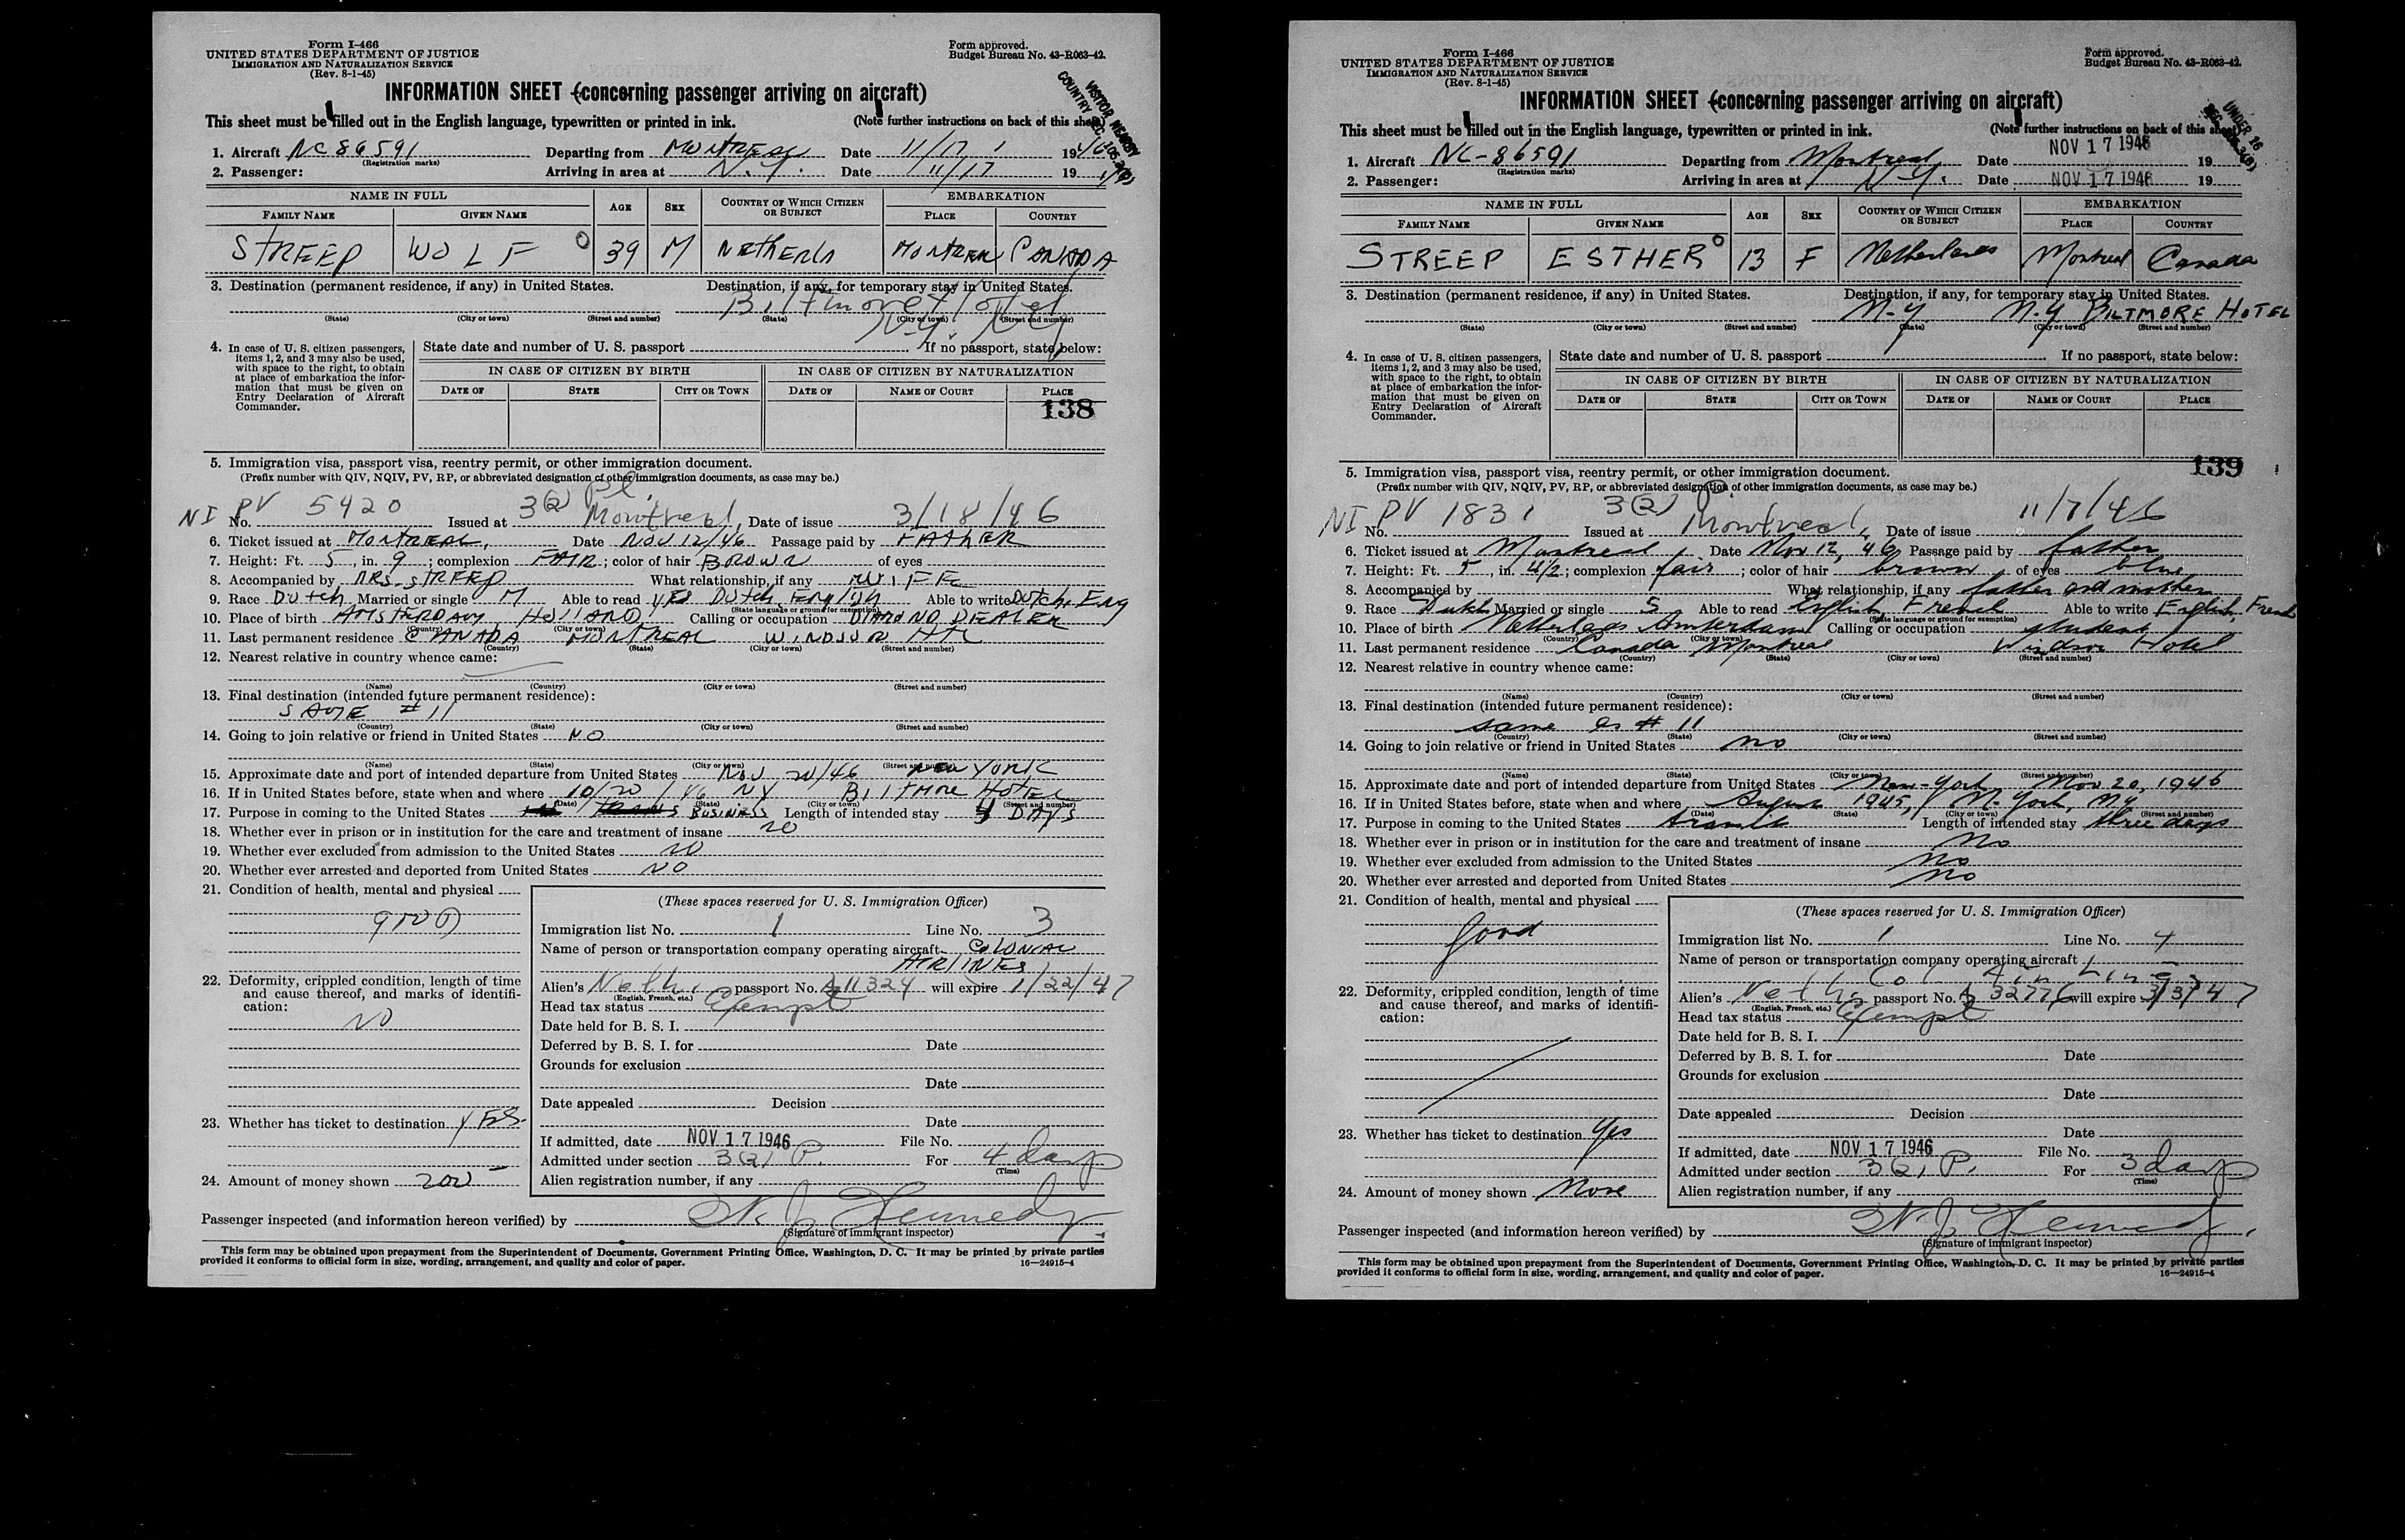 Form I-466
UNITED STATES DEPARTMENT OF JUSTICE
IMMIGRATION AND NATURALIZATION SERVICE
(Rev. 8-1-45)
Form approved.
Budget Bureau No. 43-R063-42.
INFORMATION SHEET (concerning passenger arriving on aircraft)
VISITOR NEARBY
COUNTRY SEC.
This sheet must be filled out in the English language, typewritten or printed in ink. (Note further instructions on back of this sheet)
1. Aircraft NC86591 Departing from MONTREAL Date 11/17 19
(Registration marks)
2. Passenger: Arriving in area at N.Y. Date 11/17 19
NAME IN FULL AGE SEX COUNTRY OF WHICH CITIZEN OR SUBJECT EMBARKATION
FAMILY NAME GIVEN NAME PLACE COUNTRY
STREEP WOLF 39 M NETHERLN MONTREAL CANADA
3. Destination (permanent residence, if any) in United States. Destination, if any, for temporary stay in United States.
Biltmore Hotel
N.Y. NY
(State) (City or town) (Street and number) (State) (City or town) (Street and number)
4. In case of U. S. citizen passengers, items 1, 2, and 3 may also be used, with space to the right, to obtain at place of embarkation the information that must be given on Entry Declaration of Aircraft Commander.
State date and number of U. S. passport If no passport, state below:
IN CASE OF CITIZEN BY BIRTH IN CASE OF CITIZEN BY NATURALIZATION
DATE OF STATE CITY OR TOWN DATE OF NAME OF COURT PLACE
138
5. Immigration visa, passport visa, reentry permit, or other immigration document.
(Prefix number with QIV, NQIV, PV, RP, or abbreviated designation of other immigration documents, as case may be.)
NI PV No. 5420 3(2) Issued at Montreal, Date of issue 3/18/46
6. Ticket issued at MONTREAL, Date NOV 12/46 Passage paid by FATHER
7. Height: Ft. 5, in. 9; complexion FAIR; color of hair BROWN of eyes
8. Accompanied by MRS. STREEP What relationship, if any WIFE
9. Race Dutch Married or single M Able to read YES Dutch, English Able to write Dutch, Eng
(State language or ground for exemption)
10. Place of birth AMSTERDAM HOLLAND Calling or occupation DIAMOND DEALER
(Country) (City or town)
11. Last permanent residence CANADA MONTREAL WINDSOR HTL
(Country) (State) (City or town) (Street and number)
12. Nearest relative in country whence came:
(Name) (Country) (City or town) (Street and number)
13. Final destination (intended future permanent residence):
SAME #11
(Country) (State) (City or town) (Street and number)
14. Going to join relative or friend in United States NO
(Name) (State) (City or town) (Street and number)
15. Approximate date and port of intended departure from United States NOV 20/46 NEW YORK
16. If in United States before, state when and where 10/20/46 NY BILTMORE HOTEL
(Date) (State) (City or town) (Street and number)
17. Purpose in coming to the United States BUSINESS Length of intended stay 4 DAYS
18. Whether ever in prison or in institution for the care and treatment of insane NO
19. Whether ever excluded from admission to the United States NO
20. Whether ever arrested and deported from United States NO
21. Condition of health, mental and physical
GOOD
22. Deformity, crippled condition, length of time and cause thereof, and marks of identification:
NO
23. Whether has ticket to destination YES
24. Amount of money shown 200
(These spaces reserved for U. S. Immigration Officer)
Immigration list No. 1 Line No. 3
Name of person or transportation company operating aircraft COLONIAL
AIRLINES
Alien's Neth. passport No. A 11324 will expire 1/22/47
(English, French, etc.)
Head tax status Exempt
Date held for B. S. I.
Deferred by B. S. I. for Date
Grounds for exclusion
Date
Date appealed Decision
Date
If admitted, date NOV 17 1946 File No.
Admitted under section 3(2) P. For 4 days
(Time)
Alien registration number, if any
Passenger inspected (and information hereon verified) by W. J. Kennedy
(Signature of immigrant inspector)
This form may be obtained upon prepayment from the Superintendent of Documents, Government Printing Office, Washington, D. C. It may be printed by private parties
provided it conforms to official form in size, wording, arrangement, and quality and color of paper. 16—24915-4
Form I-466
UNITED STATES DEPARTMENT OF JUSTICE
IMMIGRATION AND NATURALIZATION SERVICE
(Rev. 8-1-45)
Form approved.
Budget Bureau No. 43-R063-42.
INFORMATION SHEET (concerning passenger arriving on aircraft)
UNDER 16
This sheet must be filled out in the English language, typewritten or printed in ink. (Note further instructions on back of this sheet)
1. Aircraft NC-86591 Departing from Montreal, Date NOV 17 1946 19
(Registration marks)
2. Passenger: Arriving in area at N-Y. Date NOV 17 1946 19
NAME IN FULL AGE SEX COUNTRY OF WHICH CITIZEN OR SUBJECT EMBARKATION
FAMILY NAME GIVEN NAME PLACE COUNTRY
STREEP ESTHER 13 F Netherlands Montreal Canada
3. Destination (permanent residence, if any) in United States. Destination, if any, for temporary stay in United States.
N-Y N-Y BILTMORE HOTEL
(State) (City or town) (Street and number) (State) (City or town) (Street and number)
4. In case of U. S. citizen passengers, items 1, 2, and 3 may also be used, with space to the right, to obtain at place of embarkation the information that must be given on Entry Declaration of Aircraft Commander.
State date and number of U. S. passport If no passport, state below:
IN CASE OF CITIZEN BY BIRTH IN CASE OF CITIZEN BY NATURALIZATION
DATE OF STATE CITY OR TOWN DATE OF NAME OF COURT PLACE
139
5. Immigration visa, passport visa, reentry permit, or other immigration document.
(Prefix number with QIV, NQIV, PV, RP, or abbreviated designation of other immigration documents, as case may be.)
NI PV No. 1831 3(2) P. Issued at Montreal, Date of issue 11/7/46
6. Ticket issued at Montreal, Date Nov 12, 46 Passage paid by father
7. Height: Ft. 5, in. 4 1/2; complexion fair; color of hair brown of eyes blue
8. Accompanied by What relationship, if any father and mother
9. Race Dutch Married or single S Able to read English, French Able to write English, French
(State language or ground for exemption)
10. Place of birth Netherlands Amsterdam Calling or occupation student
(Country) (City or town)
11. Last permanent residence Canada Montreal Windsor Hotel
(Country) (State) (City or town) (Street and number)
12. Nearest relative in country whence came:
(Name) (Country) (City or town) (Street and number)
13. Final destination (intended future permanent residence):
same as # 11
(Country) (State) (City or town) (Street and number)
14. Going to join relative or friend in United States no
(Name) (State) (City or town) (Street and number)
15. Approximate date and port of intended departure from United States New-York Nov 20, 1946
16. If in United States before, state when and where August 1945, N-York, NY
(Date) (State) (City or town) (Street and number)
17. Purpose in coming to the United States transit Length of intended stay three days
18. Whether ever in prison or in institution for the care and treatment of insane No
19. Whether ever excluded from admission to the United States no
20. Whether ever arrested and deported from United States no
21. Condition of health, mental and physical
good
22. Deformity, crippled condition, length of time and cause thereof, and marks of identification:
23. Whether has ticket to destination Yes
24. Amount of money shown None
(These spaces reserved for U. S. Immigration Officer)
Immigration list No. 1 Line No. 4
Name of person or transportation company operating aircraft
Col Air Lines
Alien's Neth's passport No. A 32776 will expire 3/3/47
(English, French, etc.)
Head tax status Exempt
Date held for B. S. I.
Deferred by B. S. I. for Date
Grounds for exclusion
Date
Date appealed Decision
Date
If admitted, date NOV 17 1946 File No.
Admitted under section 3(2) P. For 3 days
(Time)
Alien registration number, if any
Passenger inspected (and information hereon verified) by W. J. Kennedy
(Signature of immigrant inspector)
This form may be obtained upon prepayment from the Superintendent of Documents, Government Printing Office, Washington, D. C. It may be printed by private parties
provided it conforms to official form in size, wording, arrangement, and quality and color of paper. 16—24915-4